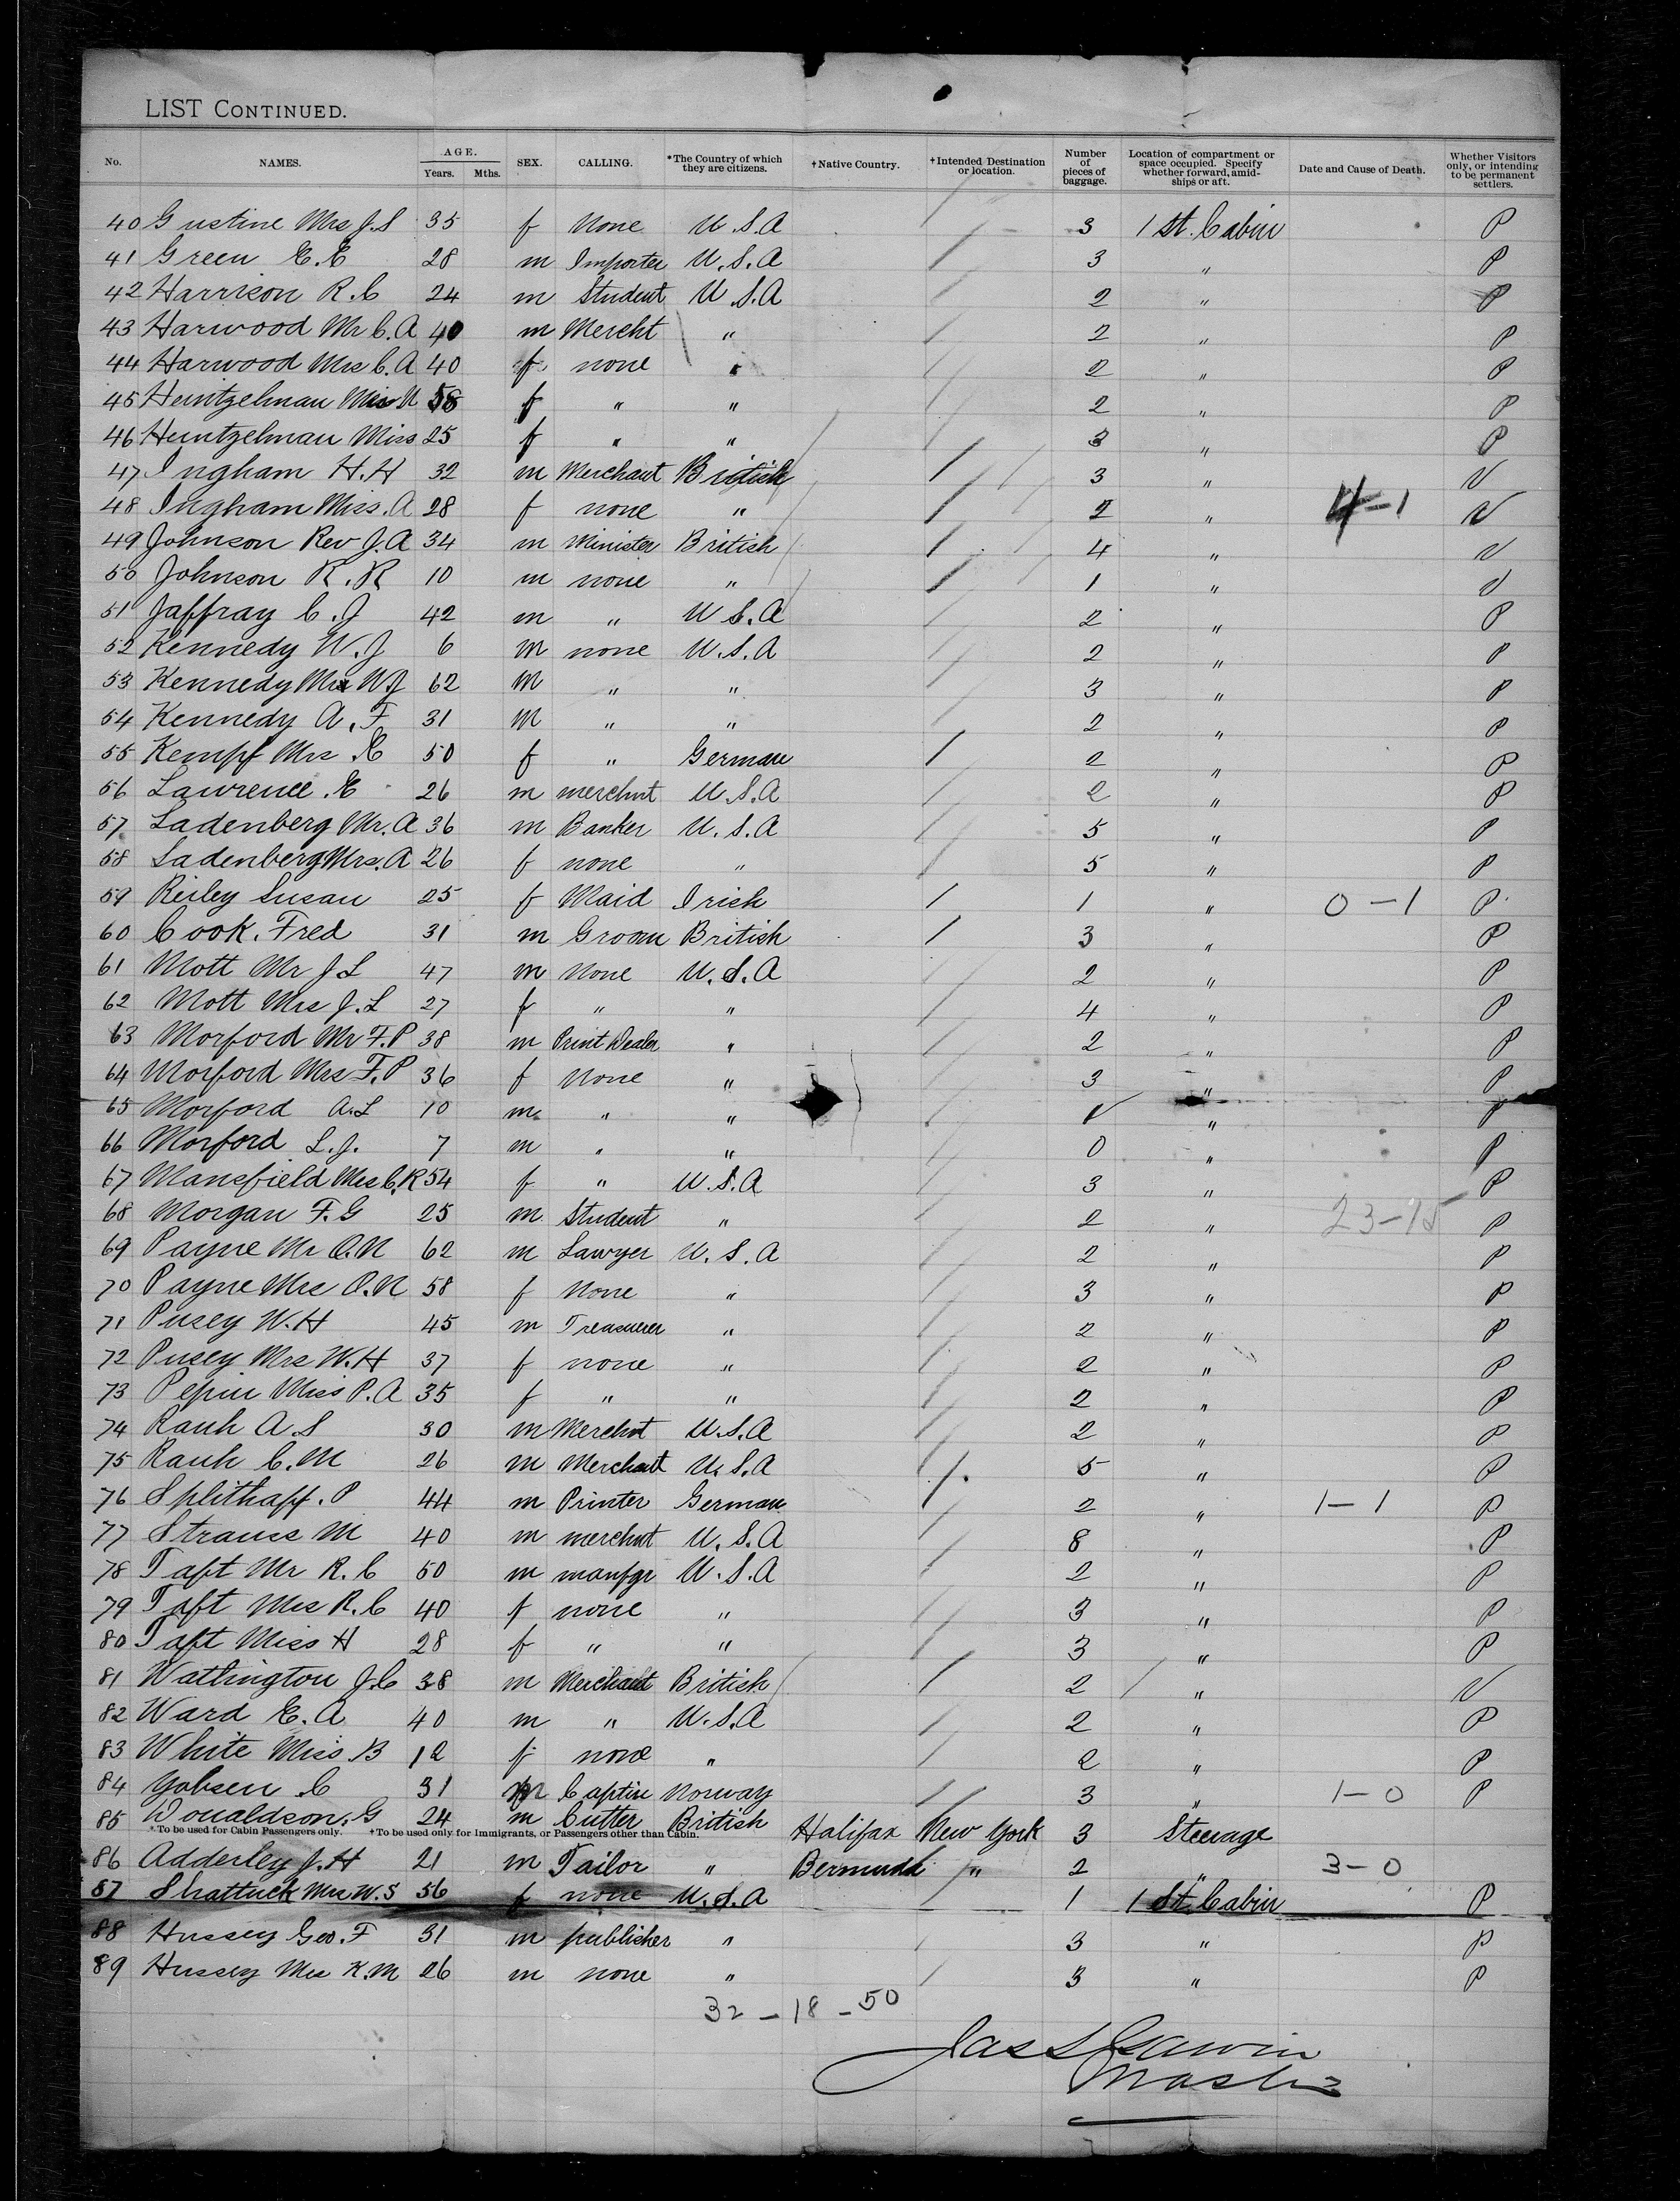 LIST CONTINUED.
No. NAMES. AGE. Years. Mths. SEX. CALLING. *The Country of which they are citizens. †Native Country. †Intended Destination or location. Number of pieces of baggage. Location of compartment or space occupied. Specify whether forward, amidships or aft. Date and Cause of Death. Whether Visitors only, or intending to be permanent settlers.
40 Gustine Mrs J.S 35 f None U.S.A 3 1 st. Cabin P
41 Green E.E 28 m Importer U.S.A 3 " P
42 Harrison R.C 24 m Student U.S.A 2 " P
43 Harwood Mr C.A 40 m Mercht " 2 " P
44 Harwood Mrs C.A 40 f none " 2 " P
45 Heintzelman M 58 f " " 2 " P
46 Heintzelman Miss 25 f " " 3 " P
47 Ingham H.H 32 m Merchant British 3 " V
48 Ingham Miss. A 28 f none " 2 " 4-1 V
49 Johnson Rev J.A 34 m Minister British 4 " V
50 Johnson R.R 10 m none " 1 " V
51 Jaffray C.J 42 m " U.S.A 2 " P
52 Kennedy W.J 6 m none U.S.A 2 " P
53 Kennedy W.J 62 m " " 3 " P
54 Kennedy A.F 31 m " " 2 " P
55 Kempf Mrs E 50 f " German 2 " P
56 Lawrence E 26 m merchnt U.S.A 2 " P
57 Ladenberg Mr. A 36 m Banker U.S.A 5 " P
58 Ladenberg Mrs. A 26 f none " 5 " P
59 Reiley Susan 25 f Maid Irish 1 " 0-1 P
60 Cook. Fred 31 m Groom British 3 " P
61 Mott Mr J.L 47 m None U.S.A 2 " P
62 Mott Mrs J.L 27 f " " 4 " P
63 Morford Mr F.P 38 m Print Dealer " 2 " P
64 Morford Mrs F.P 36 f None " 3 " P
65 Morford A.L 10 m " " 1 " P
66 Morford L.J. 7 m " " 0 " P
67 Mansfield Mrs C.R 54 f " U.S.A 3 " P
68 Morgan F.G 25 m Student " 2 " 23-15 P
69 Payne Mr O.N 62 m Lawyer U.S.A 2 " P
70 Payne Mrs O.N 58 f None " 3 " P
71 Pusey W.H 45 m Treasurer " 2 " P
72 Pusey Mrs W.H 37 f none " 2 " P
73 Pepin Miss P.A 35 f " " 2 " P
74 Rauh A.S 30 m Merchnt U.S.A 2 " P
75 Rauh C.M 26 m Merchant U.S.A 5 " P
76 Splithaff. P 44 m Printer German 2 " 1-1 P
77 Strauss M 40 m merchnt U.S.A 8 " P
78 Taft Mr R.C 50 m manfgr U.S.A 2 " P
79 Taft Mrs R.C 40 f none " 3 " P
80 Taft Miss H 28 f " " 3 " P
81 Watlington J.C 38 m Merchant British 2 " V
82 Ward E.A 40 m " U.S.A 2 " P
83 White Miss B 12 f none " 2 " P
84 Yobsen C 31 m Captin Norway 3 " 1-0 P
85 Donaldson. G 24 m Cutter British Halifax New York 3 Steerage
*To be used for Cabin Passengers only. †To be used only for Immigrants, or Passengers other than Cabin.
86 Adderley J.H 21 m Tailor " Bermuda " 2 " 3-0
87 Shattuck Mrs W.S 56 f none U.S.A 1 1 St. Cabin P
88 Hussey Geo. F 31 m publisher " 3 " P
89 Hussey Mrs K.M 26 m none " 3 " P
32-18-50
Master